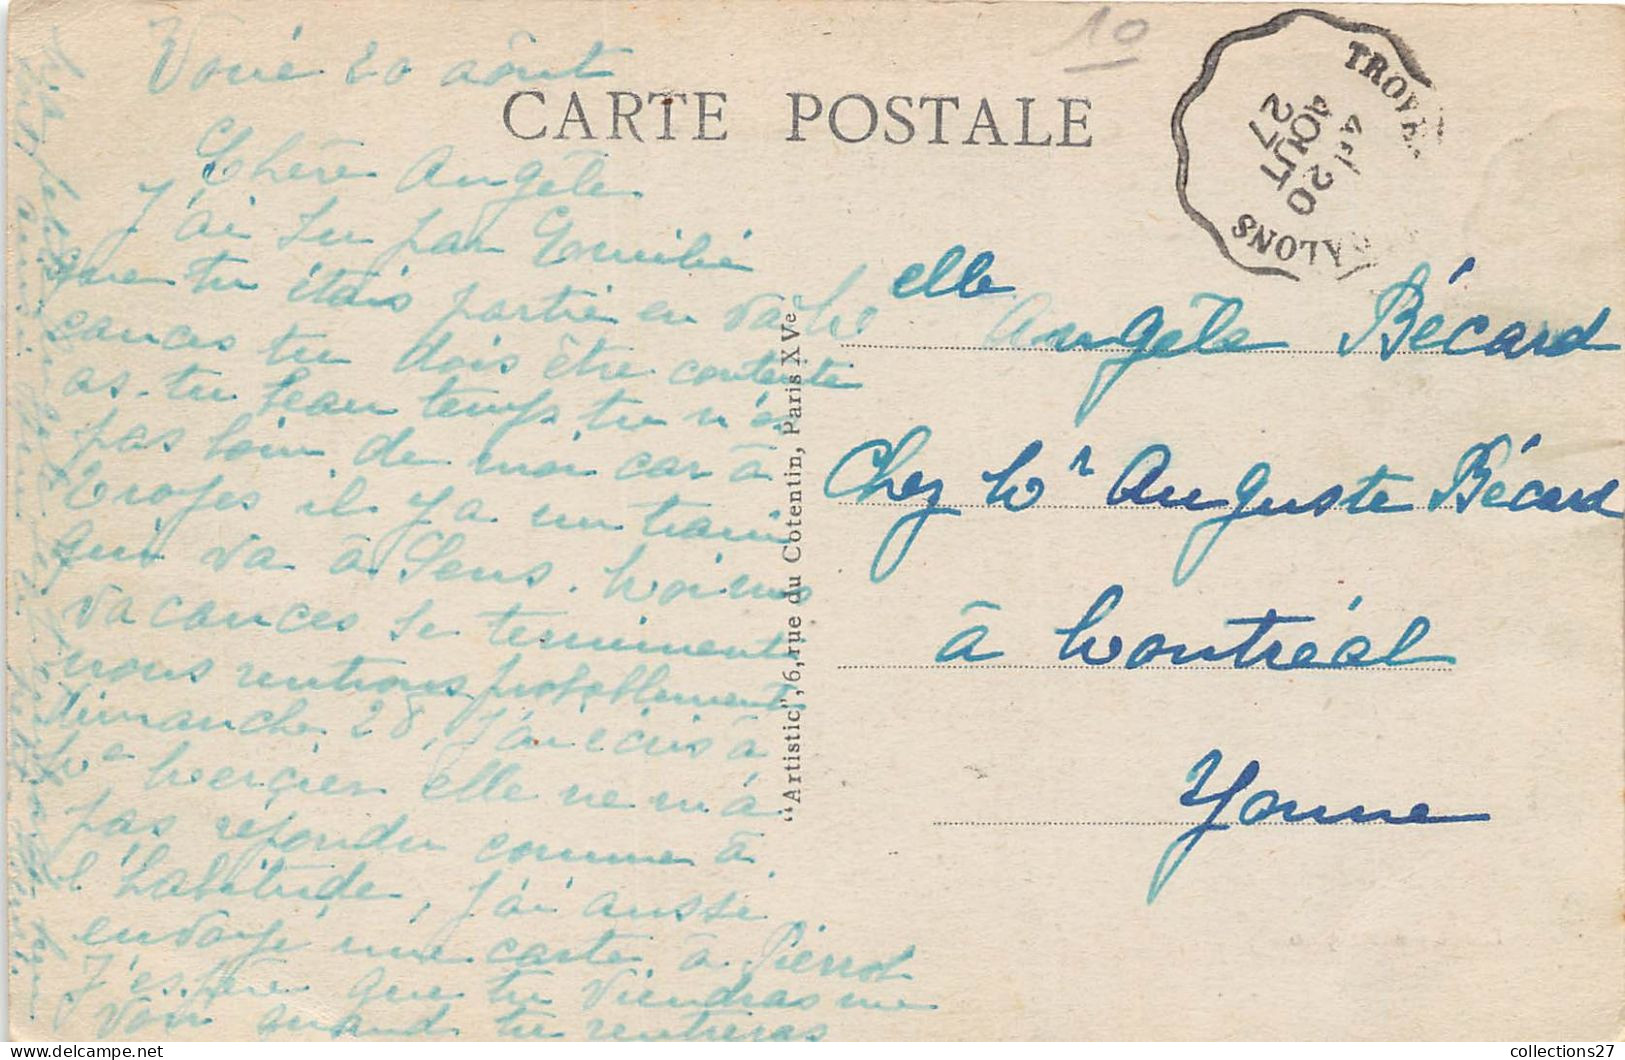 Voué 20 aôut
CARTE POSTALE
10
TROYES
4 et 20
AOUT
27
CHALONS
Chère Angèle
J'ai su par Emilie
que tu étais partie en va
cances tu dois être contente
as-tu beau temps, tu n'es
pas loin de moi car à
Troyes il y a un train
qui va à Sens. Moi mes
vacances se terminent
nous rentrons probablement
dimanche 28, J'ai écris à
Me Mercier elle ne m'a
pas repondu comme à
l'habitude, j'ai aussi
envoyé une carte à Pierrot
J'espère que tu viendras me
voir quand tu rentreras
"Artistic", 6, rue du Cotentin, Paris XVe
Melle Angèle Bécard
Chez Mr Auguste Bécard
à Montréal
Yonne
collections27